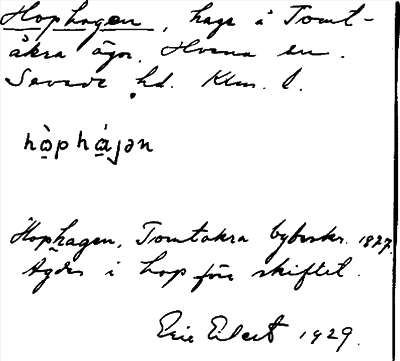 Hophagen, hage å Tomt-
åkra ägor. Hvena sn.
Sevede hd. Klm. l.
hòphájən
Hophagen, Tomtakra bybeskr. 1827.
Ägdes i hop före skiftet.
Eric Elert 1929.